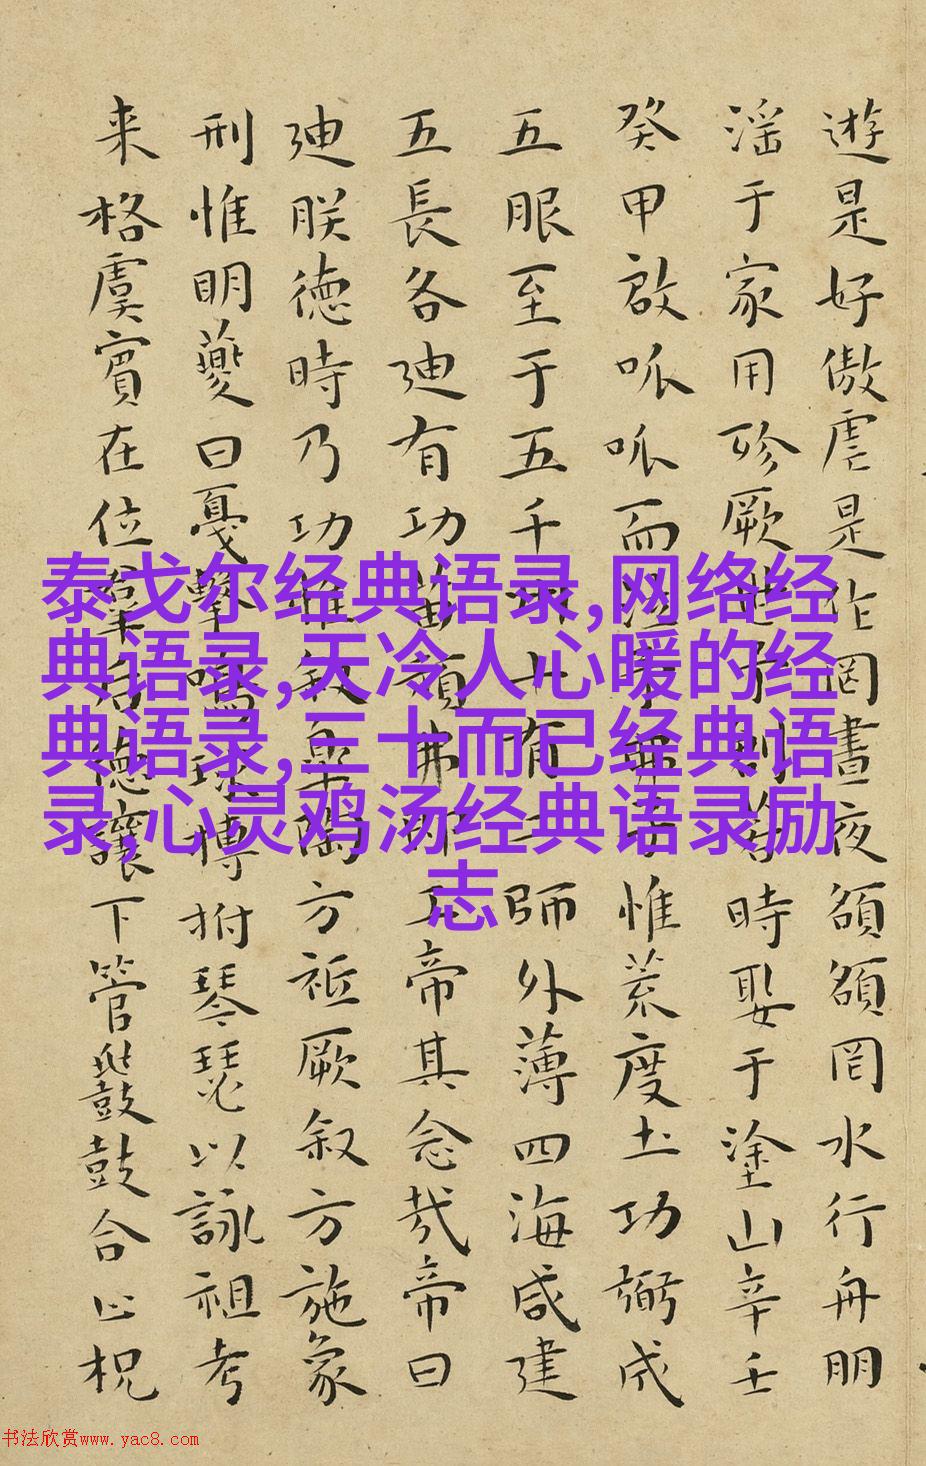 遊是好傲虐是作罔晝夜頟頟罔水行舟朋
滛于家用殄厥世予創若時娶于塗山辛壬
癸甲啟呱呱而泣予弗子惟荒度土功弼成
五服至于五千州十有二師外薄四海咸建
五長各廸有功苗頑弗即工帝其念哉帝曰
廸朕徳時乃功惟叙皐陶方祗厥叙方施象
刑惟明夔曰戛擊鳴球搏拊琴瑟以詠祖考
来格虞賓在位羣后徳讓下管鼗鼓合止柷
泰戈尔经典语录,网络经
典语录,天冷人心暖的经
典语录,三十而已经典语
录,心灵鸡汤经典语录励
志
书法欣赏www.yac8.com